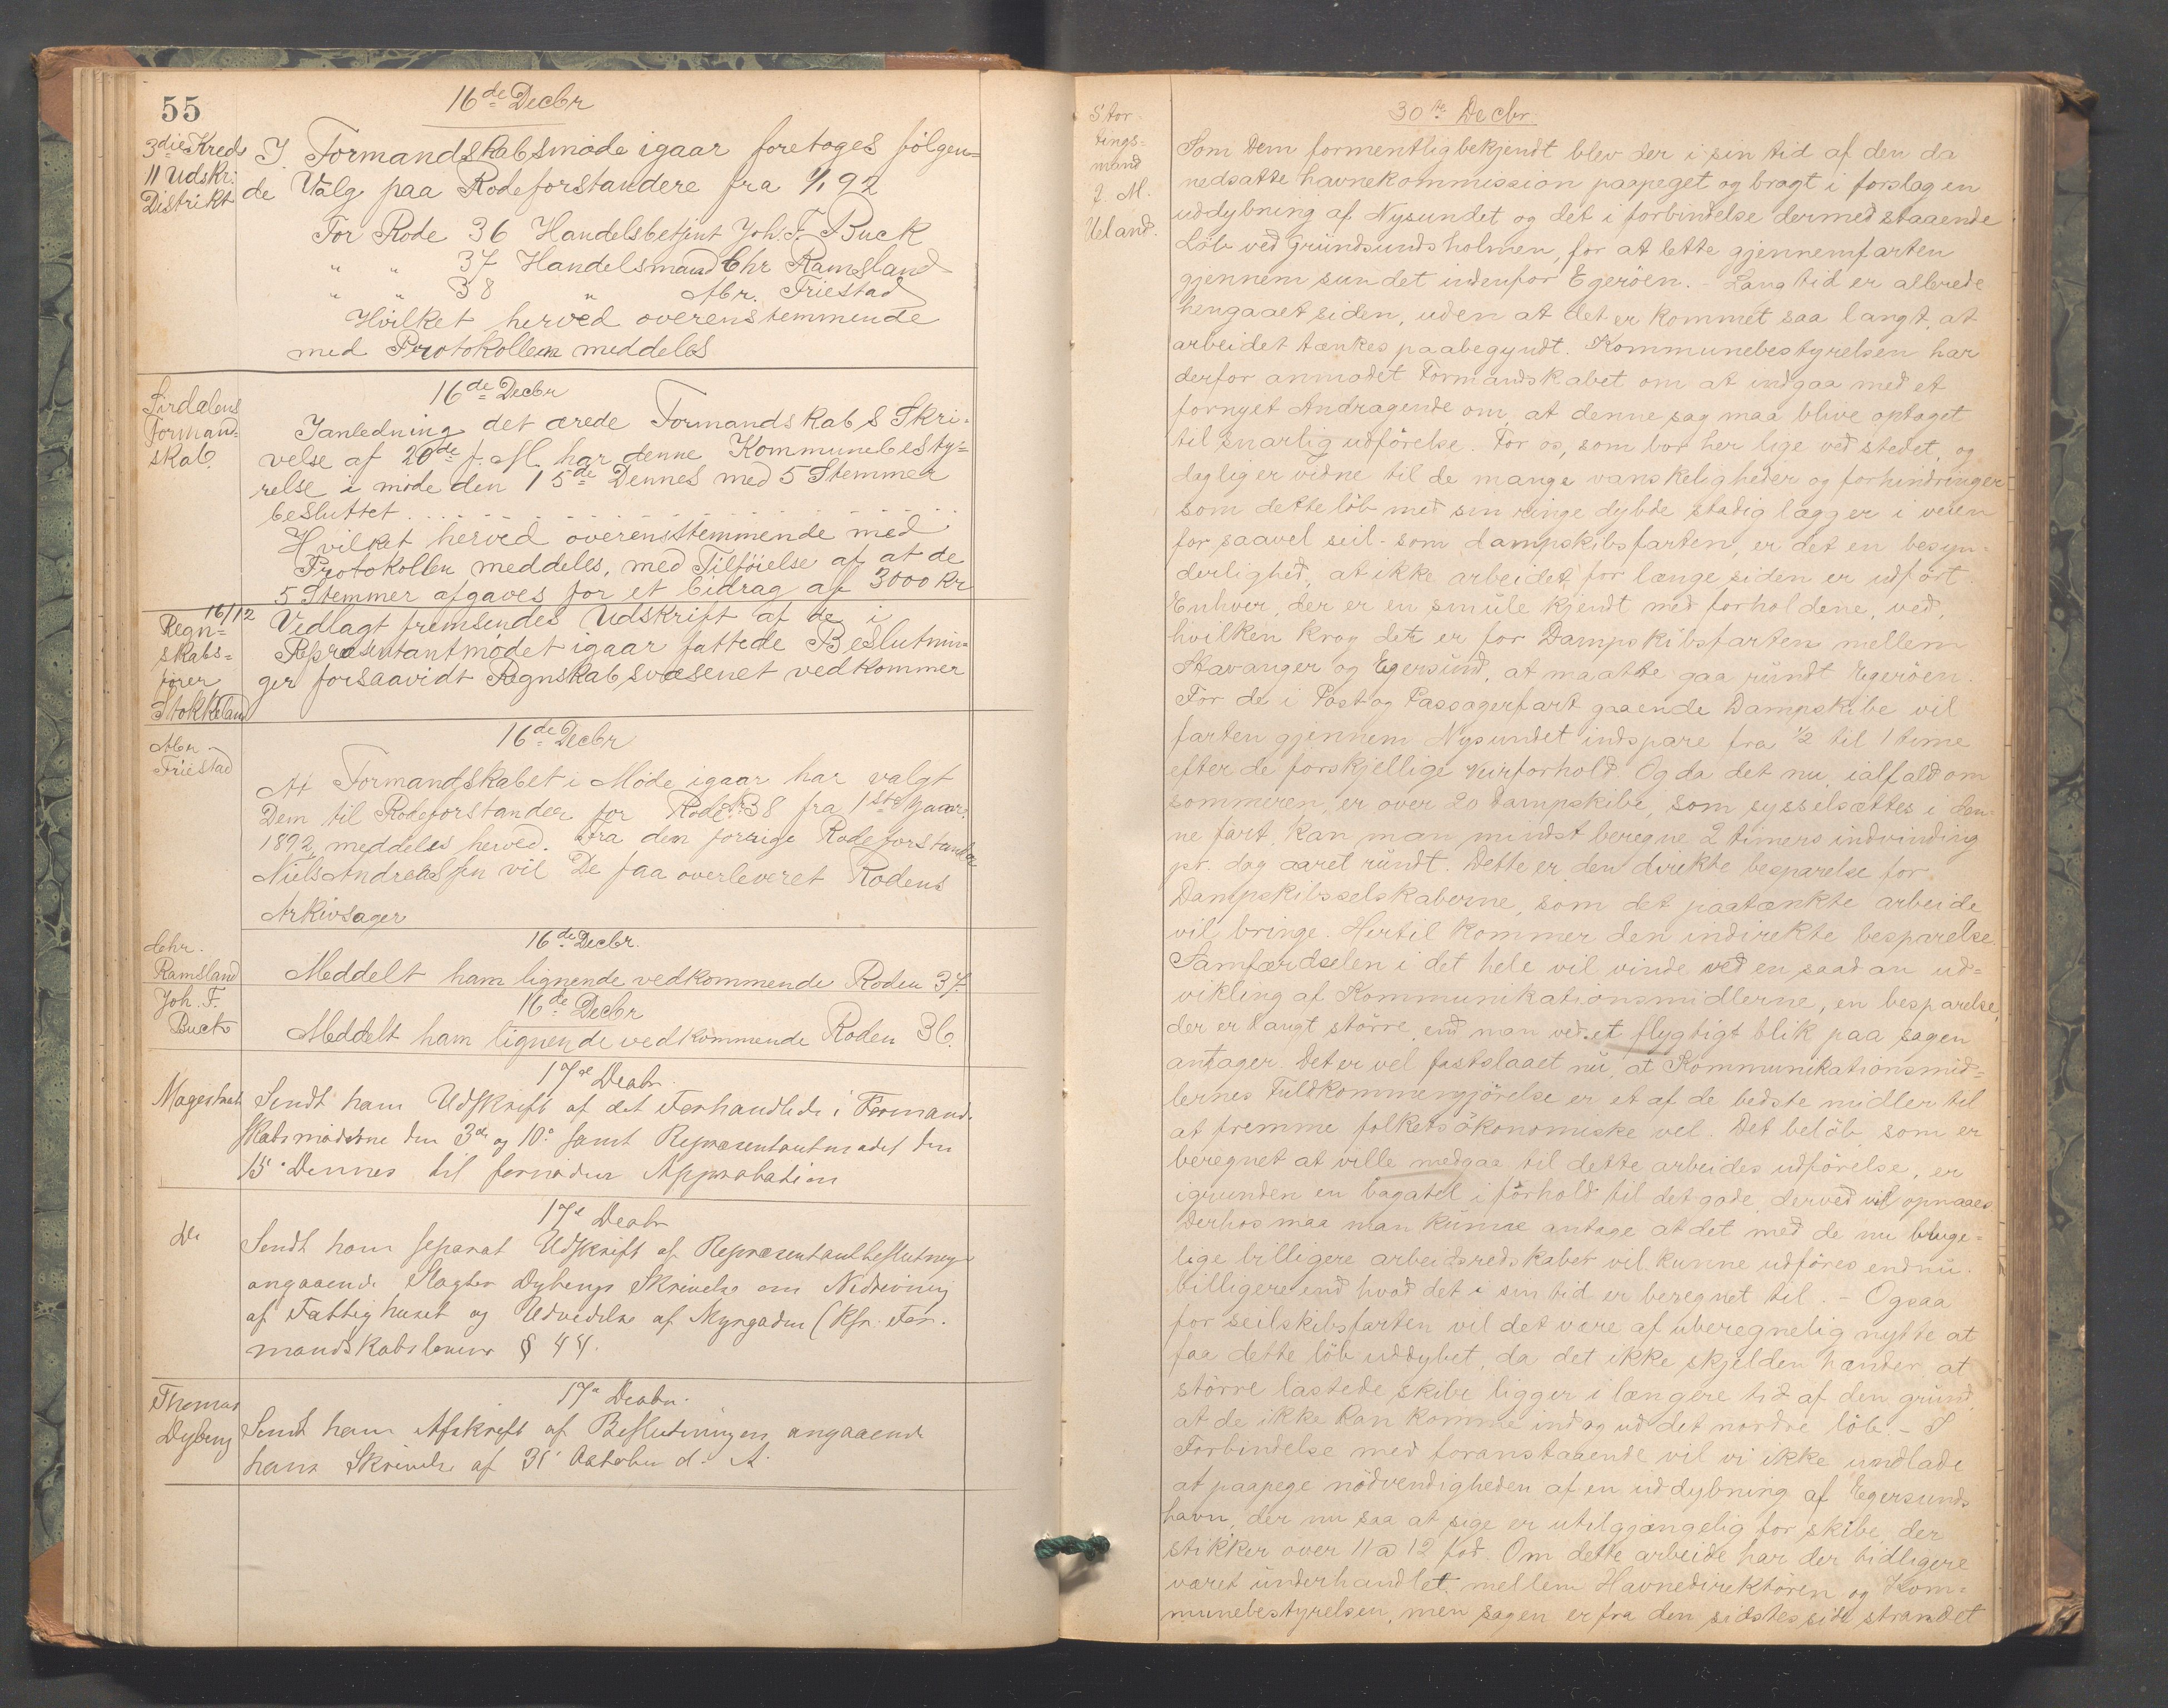 55
16de Decbr
3die Kreds
11 Udskr:
Distrikt
I Formandskabsmøde igaar foretoges følgen=
de Valg paa Rodeforstandere fra 1/1 92
For Rode 36 Handelsbetjent Joh. F. Buck
" " 37 Handelsmand Chr Ramsland
" " 38 " Abr. Friestad
Hvilket herved overensstemmende
med Protokollen meddeles
Sirdalens
Formand-
skab.
16de Decbr
Ianledning det ærede Formandskabs Skri-
velse af 20de f. M. har denne Kommunebesty=
relse i møde den 15de Dennes med 5 Stemmer
besluttet . . . . . . . . . . . . . . .
Hvilket herved overensstemmende med
Protokollen meddeles, med Tilføielse af at de
5 Stemmer afgaves for et bidrag af 3000 Kr
16/12
Regn=
skabs=
fører
Stokkeland
Vedlagt fremsendes Udskrift af de i
Repræsentantmødet igaar fattede Beslutnin=
ger forsaavidt Regnskabsvæsenet vedkommer
Abr
Friestad
16de Decbr
At Formandskabet i Møde igaar har valgt
Dem til Rodeforstander for Rode 38 fra 1ste Januar
1892, meddeles herved. Fra den forrige Rodeforstander
Niels Andreassen vil De faa overleveret Rodens
Arkivsager
Chr.
Ramsland
16de Decbr.
Meddelt ham lignende vedkommende Roden 37.
Joh. F.
Buck
16de Decbr
Meddelt ham lignende vedkommende Roden 36.
Magistrat
17de Decbr.
Sendt ham Udskrift af det Forhandlede i Formand-
skabsmøderne den 3de og 10de samt Repræsentantmødet den
15de Dennes til fornøden Approbation
Do
17de Decbr
Sendt ham separat Udskrift af Repræsentantbeslutning
angaaende Slagter Dybergs Skrivelse om Nedrivning
af Fattighuset og Udvidelse af Myrgaden (Kfr. For-
mandskabsloven § 44.
Thomas
Dyberg
17de Decbr.
Sendt ham Afskrift af Beslutningen angaaende
hans Skrivelse af 31 Oktober d. A.
Stor
tings=
mand
I. M.
Ueland.
30te Decbr
Som Dem formentlig bekjendt blev der i sin tid af den da
nedsatte havnekommission paapeget og bragt i forslag en
uddybning af Nysundet og det i forbindelse dermed staaende
Löb ved Gründsundsholmen, for at lette gjennemfarten
gjennem sundet indenfor Egeröen. - Lang tid er allerede
hengaaet siden, uden at det er kommet saa langt, at
arbeidet tænkes paabegyndt. Kommunebestyrelsen har
derfor anmodet Formandskabet om at indgaa med et
fornyet Andragende om, at denne sag maa blive optaget
til snarlig udförelse. For os, som bor her lige ved stedet, og
daglig er vidne til de mange vanskeligheder og forhindringer
som dette löb med sin ringe dybde stadig lægger i veien
for saavel seil- som dampskibsfarten, er det en besyn-
derlighed, at ikke arbeidet for længe siden er udfört.
Enhver, der er en smule kjendt med forholdene, ved,
hvilken krog det er for Dampskibsfarten mellem
Stavanger og Egersund, at maatte gaa rundt Egeröen.
For de i Post og Passagerfart gaaende Dampskibe vil
farten gjennem Nysundet indspare fra 1/2 til 1 time
efter de forskjellige Veirforhold. Og da det nu, ialfald om
sommeren, er over 20 Dampskibe, som sysselsættes i den-
ne fart, kan man mindst beregne 2 timers indvinding
pr. dag aaret rundt. Dette er den direkte besparelse for
Dampskibsselskaberne, som det paatænkte arbeide
vil bringe. Hertil kommer den indirekte besparelse.
Samfærdselen i det hele vil vinde ved en saadan ud=
vikling af Kommunikationsmidlerne, en besparelse,
der er langt större, end man ved et flygtigt blik paa sagen
antager. Det er vel fastslaaet nu, at Kommunikationsmid=
lernes Fuldkommengjörelse er et af de bedste midler til
at fremme folkets ökonomiske vel. Det belöb, som er
beregnet at ville medgaa til dette arbeides udförelse, er
igrunden en bagatel i forhold til det gode, derved vil opnaaes
Derhos maa man kunne antage at det med de nu bruge=
lige billigere arbeidsredskaber vil kunne udföres endnu
billigere end hvad det i sin tid er beregnet til. - Ogsaa
for seilskibsfarten vil det være af uberegnelig nytte at
faa dette löb uddybet, da det ikke skjelden hænder, at
större lastede skibe ligger i længere tid af den grund,
at de ikke kan komme ind og ud det nordre löb. - I
Forbindelse med foranstaaende vil vi ikke undlade
at paapege nödvendigheden af en uddybning af Egersunds
havn, der nu saa at sige er utilgjængelig for skibe, der
stikker over 11 a 12 fod. Om dette arbeide har der tidligere
været underhandlet mellem Havnedirektören og Kom=
munebestyrelsen, men sagen er fra den sidstes side strandet